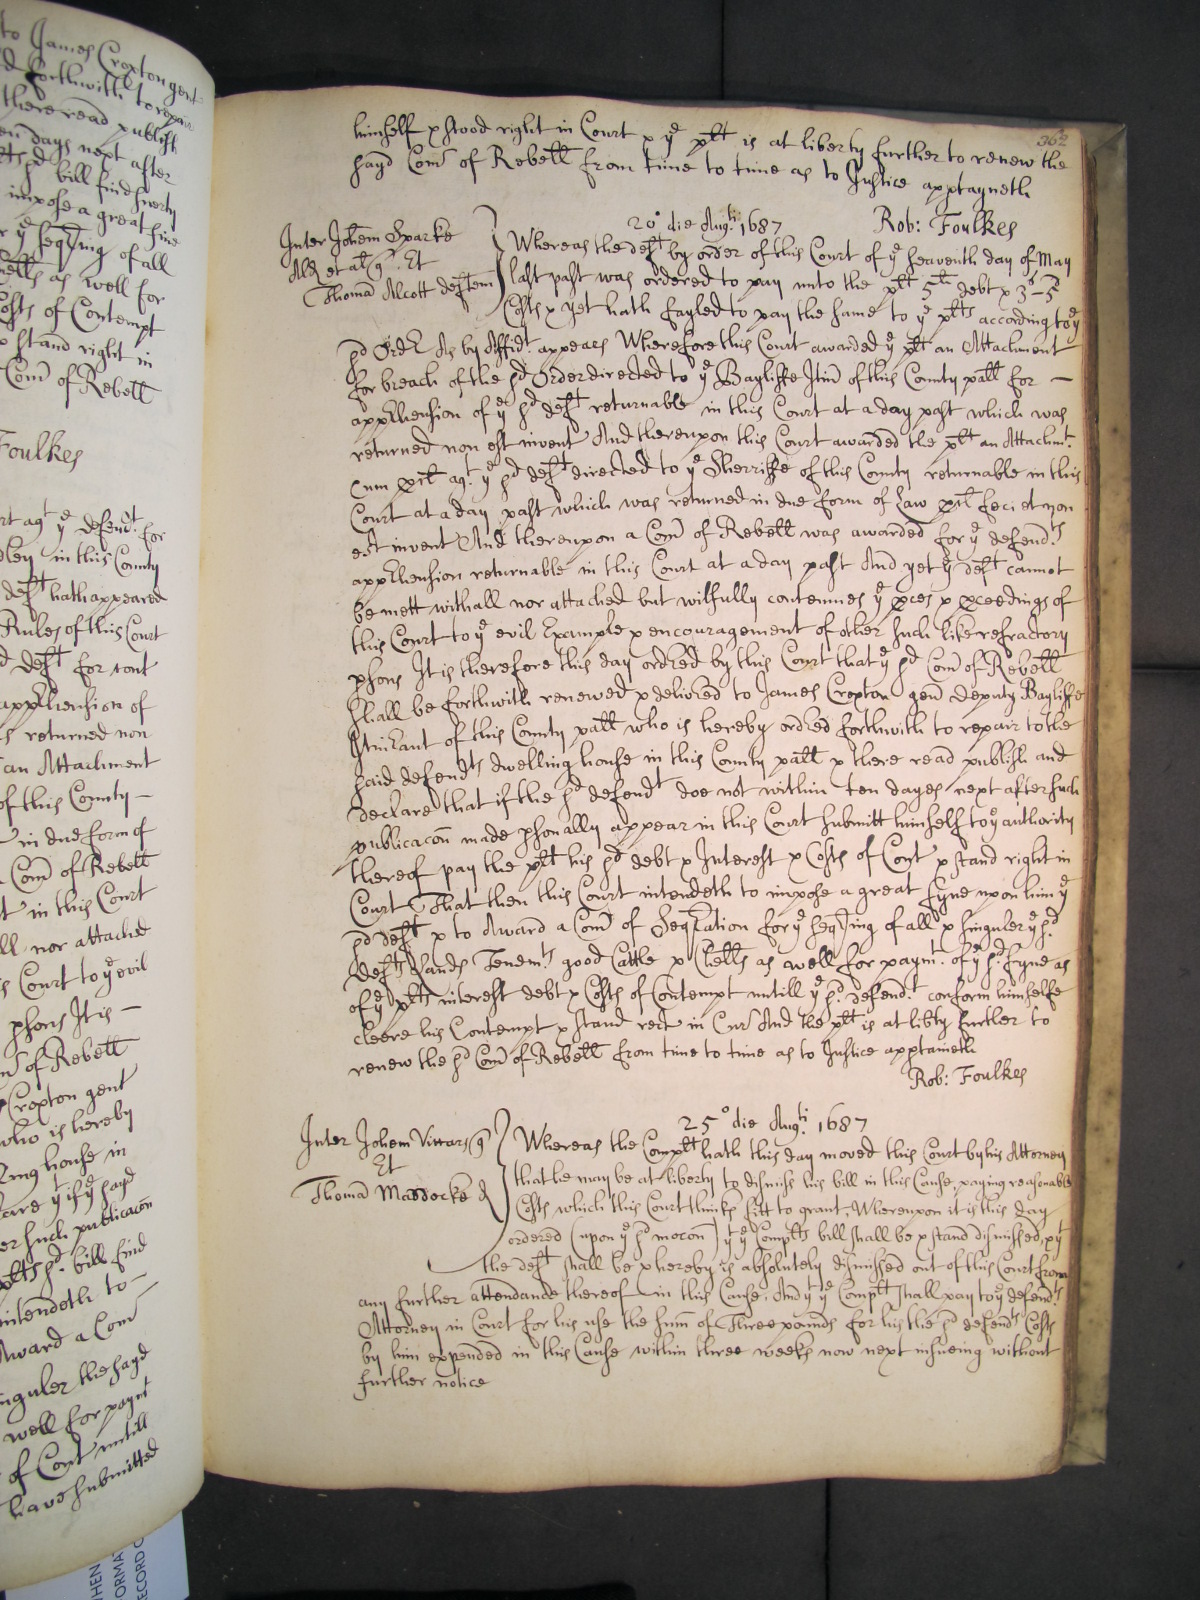 to James Croxton gent
forthwith to repair
there read publish
en days next after
sd bill find swerty
impose a great fine
r ye seqring of all
tells as well for
Costs of Contempt
stand right in
Com of Rebell
Foulkes
rt agt ye defendt for
dley in this County
deft hath appeared
Rules of this Court
d deft for cont
apprhension of
s returned non
an Attachment
of this County —
in due form of
Com of Rebell
t in this Court
ll nor attached
s Court to ye evil
psons It is —
of Rebell
Croxton gent
who is hereby
ling house in
are yt if ye sayd
er such publicacon
plts sd bill find
intendeth to —
Award a Com
nguler the sayd
well for paymt
of Cont untill
have submitted
362
himself & stood right in Court & ye plt is at liberty further to renew the
sayd Com of Rebell from time to time as to Justice apptayneth
Rob: Foulkes
20o die Augti 1687
Inter Johem Sparke
Ald et al q Et
Thomā Alcott deftem
Whereas the deft by order of this Court of ye seaventh day of May
last past was ordered to pay unto the plt 5li debt & 3s-5d
Costs & yet hath fayled to pay the same to ye plts according to ye
sd Ordr As by Affidt appears Wherefore this Court awarded ye plt an Attachment
for breach of the sd Order directed to ye Bayliffe Itin of this County pall for —
apprhension of ye sd deft returnable in this Court at a day past which was
returned non est invent And thereupon this Court awarded the plt an Attachmt
cum procl agt ye sd deft directed to ye Sherriffe of this County returnable in this
Court at a day past which was returned in due form of Law procl feci et non
est invent And thereupon a Com of Rebell was awarded for ye defendts
apprhension returnable in this Court at a day past And yet ye deft cannot
be mett withall nor attached but wilfully contemnes ye pces & pceedings of
this Court to ye evil Example & encouragement of other such like refractory
psons It is therefore this day ordred by this Court that ye sd Com of Rebell
shall be forthwith renewed & delivred to James Croxton gen Deputy Bayliffe
Itinrant of this County pall who is hereby ordred forthwith to repair to the
said defendts dwelling house in this County pall & there read publish and
declare that if the sd defendt doe not within ten dayes next after such
publicacōn made psonally appear in this Court submitt himself to ye authority
thereof pay the plt his sd debt & Interest & Costs of Cont & stand right in
Court That then this Court intendeth to impose a great fyne upon him ye
sd deft & to Award a Com of Seqration for ye seqring of all & singuler ye sd
defts Lands Tenemts good Cattle & Chells as well for paymt of ye sd fyne as
of ye plts interest debt & Costs of Contempt untill ye sd defendt conform himselfe
cleere his Contempt & stand rect in Cur And the plt is at libty further to
renew the sd Com of Rebell from time to time as to Justice apptaineth
Rob: Foulkes
25o die Augti 1687
Inter Johem Vittars q
Et
Thomā Maddocke d
Whereas the Complt hath this day moved this Court by his Attorney
that he may be at liberty to dismiss his bill in this Cause, paying reasonable
Costs which this Court thinks fitt to grant, Whereupon it is this day
ordered (upon ye sd mocon) yt ye Complts bill shall be & stand dismissed, & yt
the deft shall be & hereby is absolutely dismissed out of this Court from
any further attendance thereof in this Cause, And yt ye Complt shall pay to ye defendts
Attorney in Court for his use the sum of Three pounds for his the sd defendts Costs
by him expended in this Cause within three weeks now next insueing without
further notice